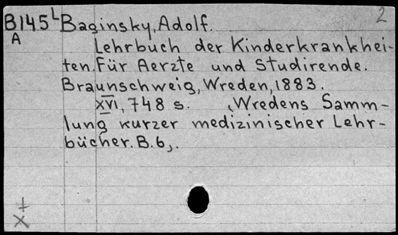 2
B145L Baginsky, Adolf.
A
Lehrbuch der Kinderkrankhei-
ten. Für Aerzte und Studirende.
Braunschweig, Wreden, 1883.
XVI, 748 s. (Wredens Samm-
lung kurzer medizinischer Lehr-
bücher. B. 6).
+
X